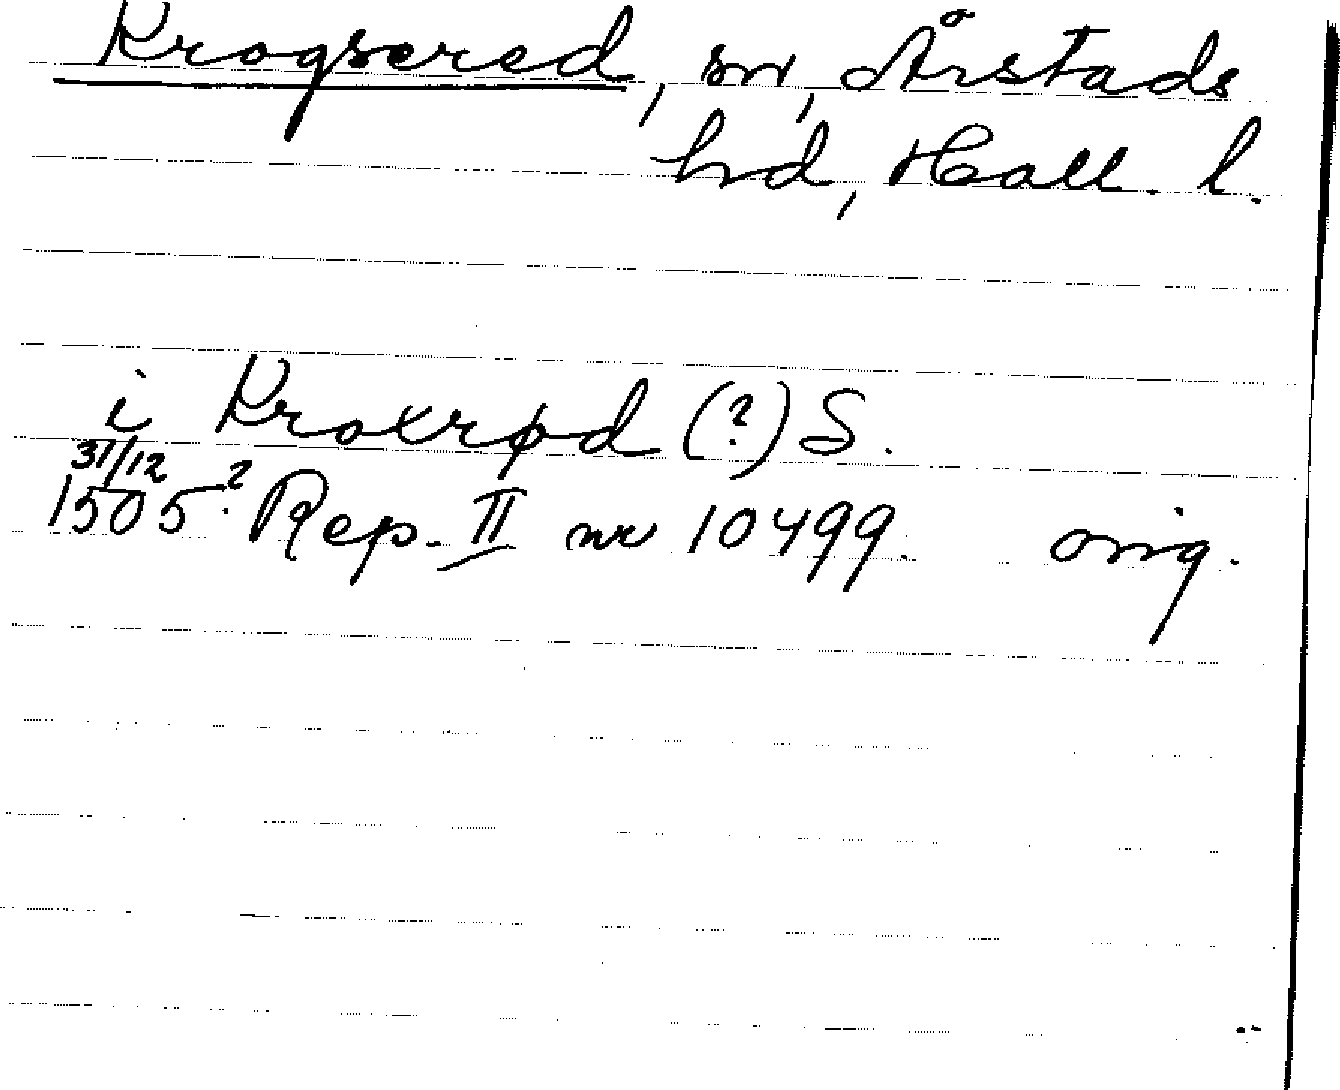 Krogsered, sn, Årstads
hd, Hall. l.
i Kroxrød (?) S.
31/12
1505? Rep. II nr 10499. orig.